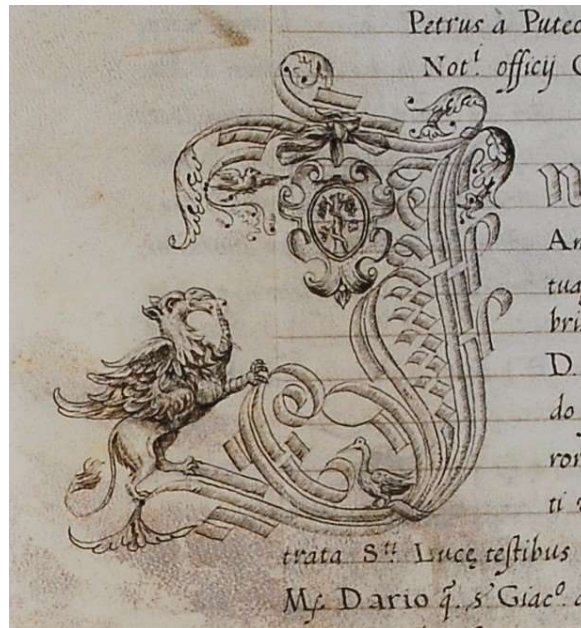 Petrus a Putec
Not.ⁱ officij C
I N
An
tua
bri
D.
do
ror
ti
trata S.ᵗⁱ Lucę testibus
Mſ. Dario q̃. s.ʳ Giac.º